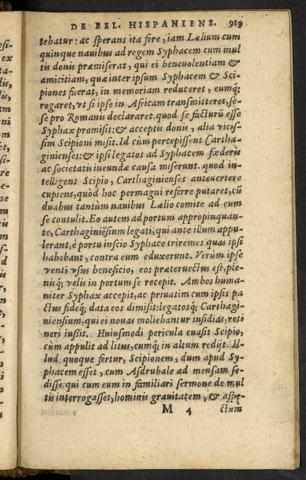 DE BEL. HISPANIENS. 919
tebatur: ac sperans ita fore, iam Lælium cum
quinque nauibus ad regem Syphacem cum mul
tis donis præmiserat, qui ei beneuolentiam &
amicitiam, quæ inter ipsum Syphacem & Sci-
piones fuerat, in memoriam reduceret, eumq;
rogaret, vt si ipse in Africam transmitteret, se-
se pro Romanis declararet. quod se facturū esse
Syphax promisit: & acceptis donis, alia vicis-
sim Scipioni misit. Id cùm percepissent Cartha-
ginienses: & ipsi legatos ad Syphacem fœderis
ac societatis ineundæ causa miserunt. quod in-
telligens Scipio, Carthaginienses anteuertere
cupiens, quòd hoc permagni referre putaret, cū
duabus tantùm nauibus Lælio comite ad eum
se contulit. Eo autem ad portum appropinquan-
te, Carthaginiēsium legati, qui ante illum appu-
lerant, è portu inscio Syphace triremes quas ipsi
habebant, contra eum eduxerunt. Verùm ipse
venti vsus beneficio, eos præteruectus est, ple-
nisq; velis in portum se recepit. Ambos huma-
niter Syphax accepit, ac priuatim cum ipsis pa
ctus fideq; data eos dimisit: legatosq; Carthagi-
niensium, qui ei nouas moliebantur insidias, reti
neri iussit. Huiusmodi pericula euasit Scipio,
cùm appulit ad litus, cumq; in altum redijt. Il-
lud quoque fertur, Scipionem, dum apud Sy-
phacem esset, cum Asdrubale ad mensam se-
disse: qui cum eum in familiari sermone de mul
tis interrogasset, hominis grauitatem, & aspe-
M 4 ctum